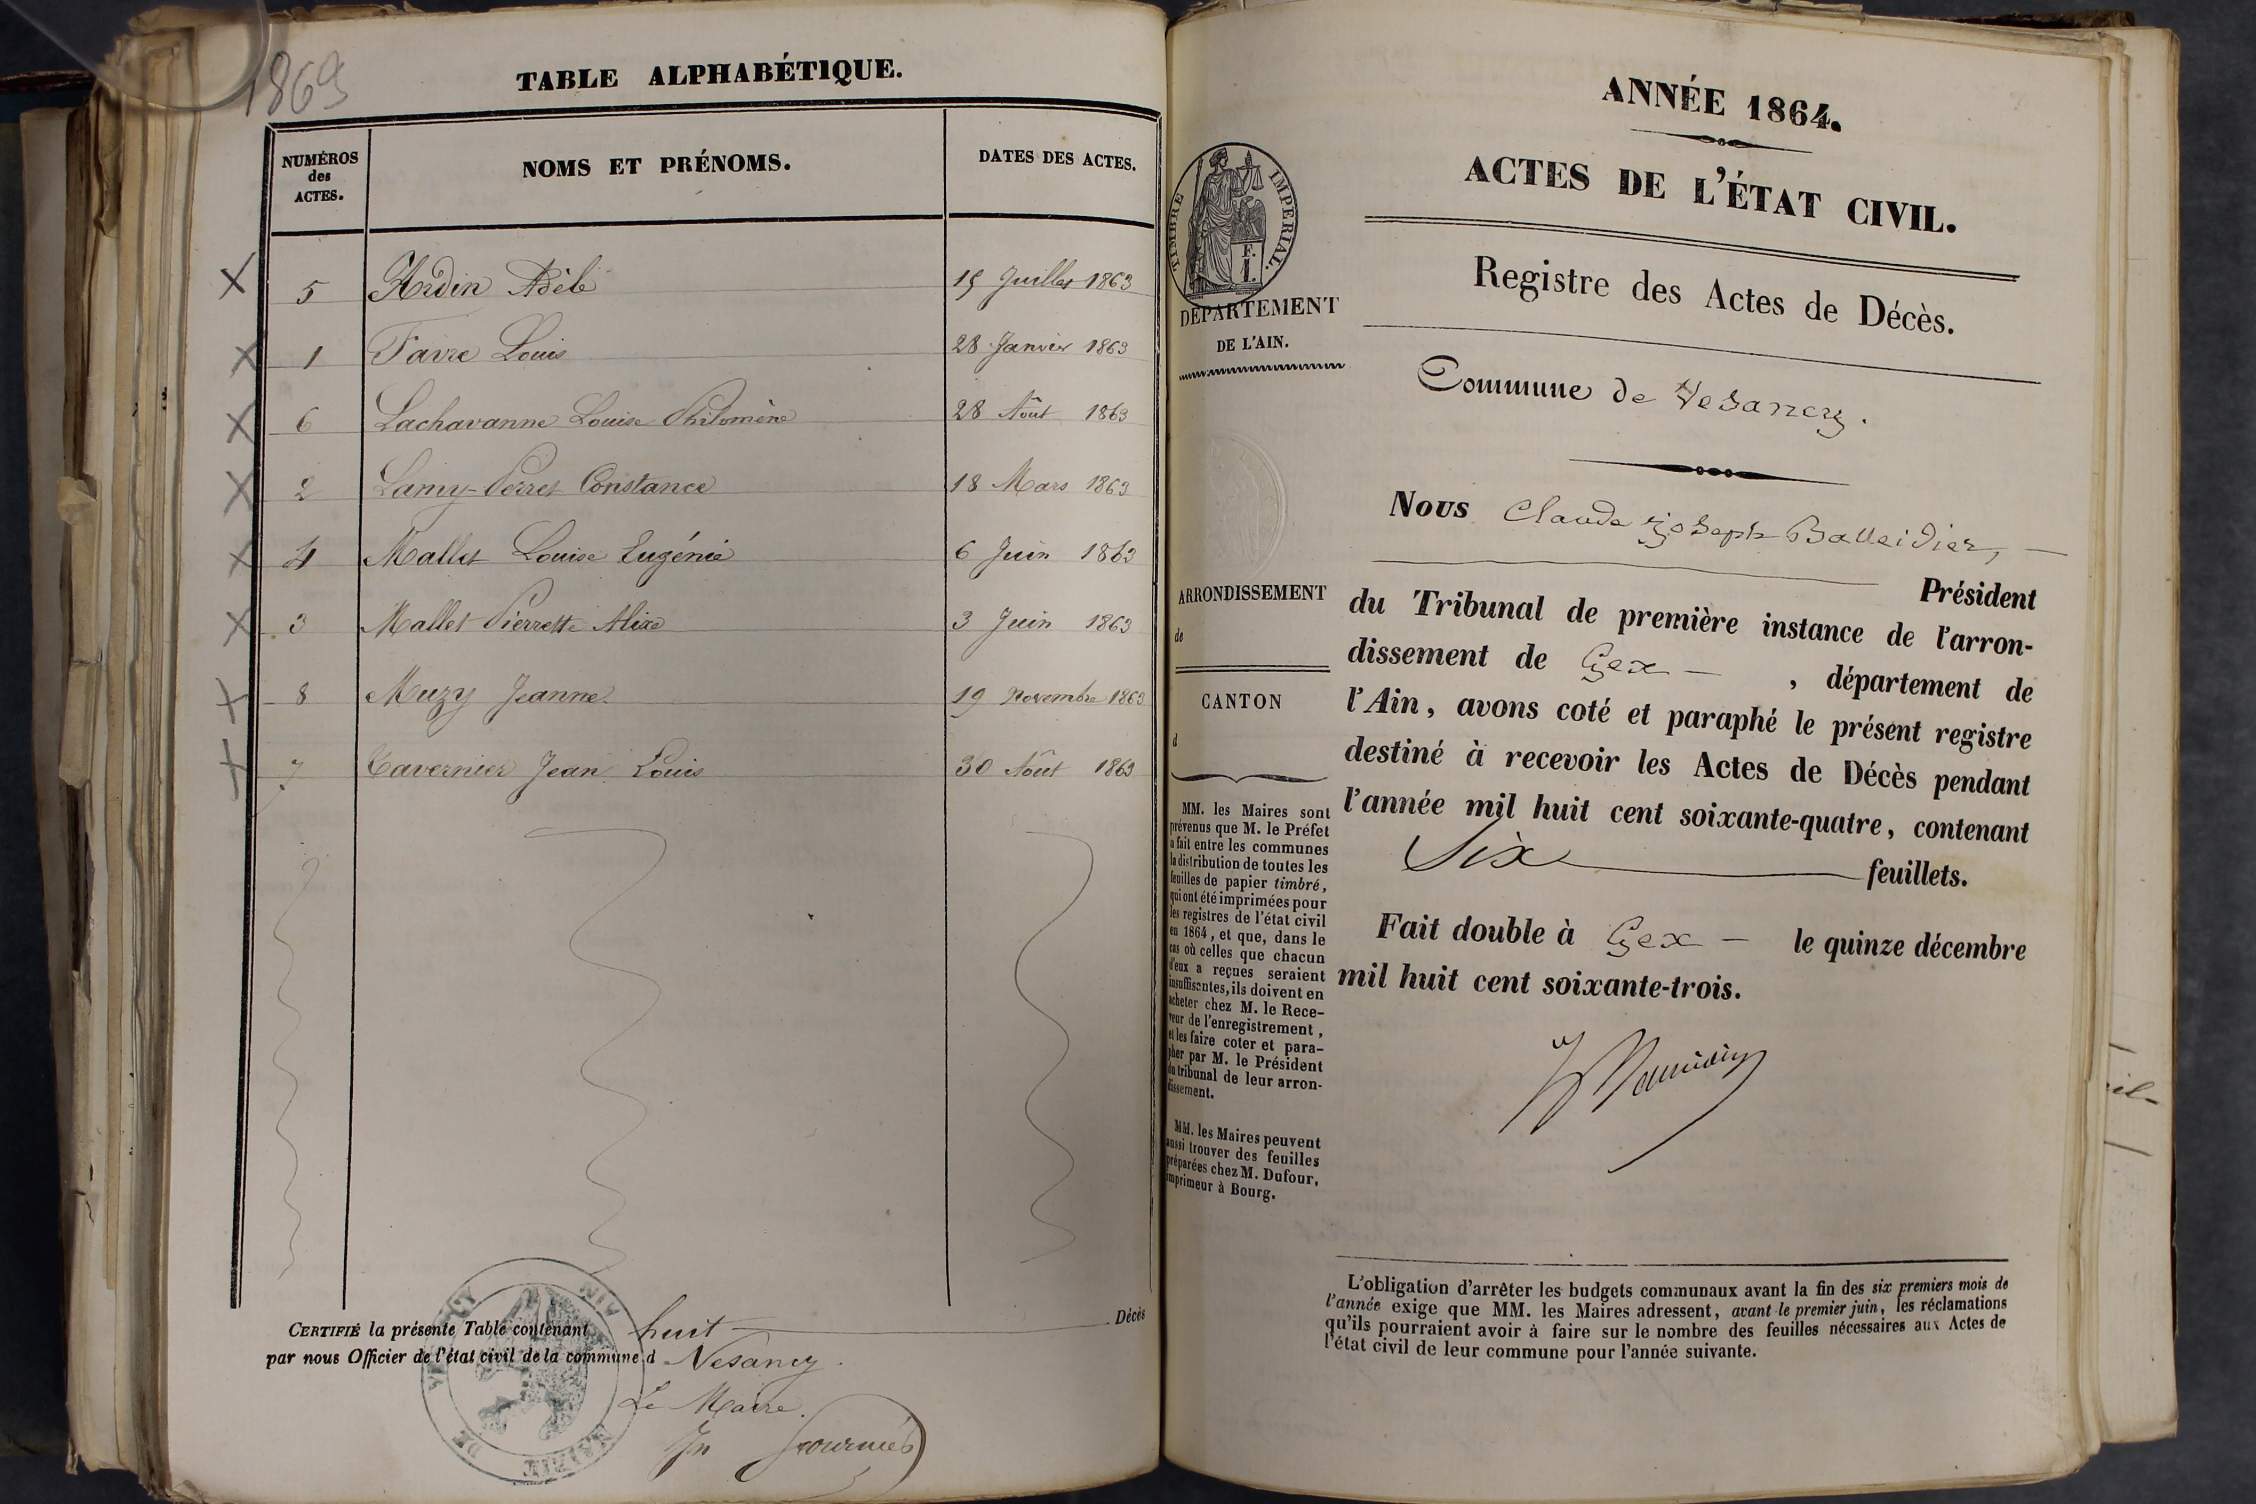 1863
TABLE ALPHABÉTIQUE.
NUMÉROS
des
ACTES.
NOMS ET PRÉNOMS.
DATES DES ACTES.
X 5 Ardin Adèle 15 Juillet 1863
X 1 Favre Louis 28 Janvier 1863
X 6 Lachavanne Louise Philomène 28 Août 1863
X 2 Lamy-Perret Constance 18 Mars 1863
X 4 Mallet Louise Eugénie 6 Juin 1863
X 3 Mallet Pierrette Alixe 3 Juin 1863
X 8 Muzy Jeanne 19 Novembre 1863
X 7 Tavernier Jean Louis 30 Août 1863
CERTIFIÉ la présente Table contenant huit Décès
par nous Officier de l'état civil de la commune d Vesancy.
Le Maire.
MAIRIE DE
AIN
ANNÉE 1864.
ACTES DE L'ÉTAT CIVIL.
Registre des Actes de Décès.
TIMBRE IMPERIAL.
F.
1.
DÉPARTEMENT
DE L'AIN.
Commune de Vesancy.
Nous Claude Joseph Balleidier,
Président
du Tribunal de première instance de l'arron-
dissement de Gex, département de
l'Ain, avons coté et paraphé le présent registre
destiné à recevoir les Actes de Décès pendant
l'année mil huit cent soixante-quatre, contenant
Six feuillets.
Fait double à Gex le quinze décembre
mil huit cent soixante-trois.
ARRONDISSEMENT
de
CANTON
d
MM. les Maires sont
prévenus que M. le Préfet
a fait entre les communes
la distribution de toutes les
feuilles de papier timbré,
qui ont été imprimées pour
les registres de l'état civil
en 1864, et que, dans le
cas où celles que chacun
d'eux a reçues seraient
insuffisantes, ils doivent en
acheter chez M. le Rece-
veur de l'enregistrement,
et les faire coter et para-
pher par M. le Président
du tribunal de leur arron-
dissement.
MM. les Maires peuvent
aussi trouver des feuilles
préparées chez M. Dufour,
imprimeur à Bourg.
L'obligation d'arrêter les budgets communaux avant la fin des six premiers mois de
l'année exige que MM. les Maires adressent, avant le premier juin, les réclamations
qu'ils pourraient avoir à faire sur le nombre des feuilles nécessaires aux Actes de
l'état civil de leur commune pour l'année suivante.